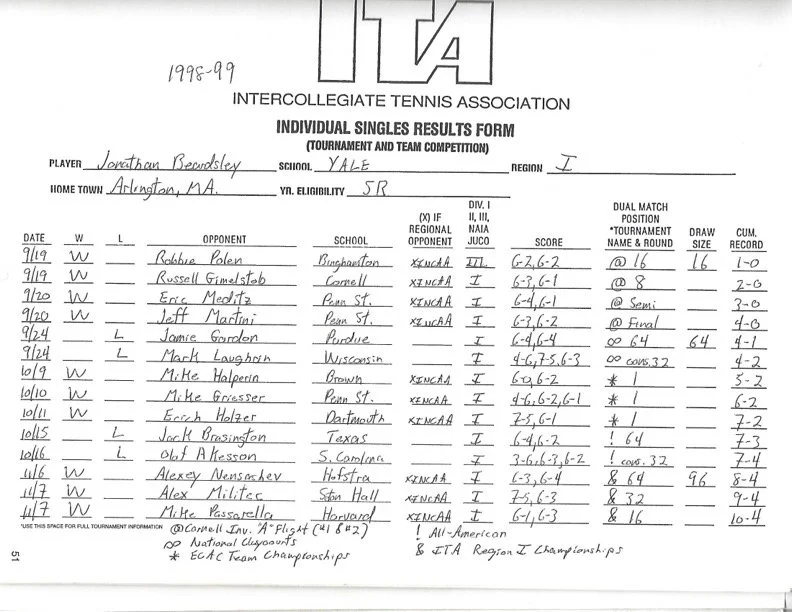 1998-99
ITA
INTERCOLLEGIATE TENNIS ASSOCIATION
INDIVIDUAL SINGLES RESULTS FORM
(TOURNAMENT AND TEAM COMPETITION)
PLAYER Jonathan Beardsley SCHOOL YALE REGION I
HOME TOWN Arlington, MA. YR. ELIGIBILITY SR
DATE W L OPPONENT SCHOOL (X) IF REGIONAL OPPONENT DIV. I II, III, NAIA JUCO SCORE DUAL MATCH POSITION *TOURNAMENT NAME & ROUND DRAW SIZE CUM. RECORD
9/19 W Robbie Polen Binghamton XINCAA III 6-2, 6-2 @ 16 16 1-0
9/19 W Russell Gimelstob Cornell XINCAA I 6-3, 6-1 @ 8 2-0
9/20 W Eric Meditz Penn St. XINCAA I 6-4, 6-1 @ Semi 3-0
9/20 W Jeff Martini Penn St. XINCAA I 6-3, 6-2 @ Final 4-0
9/24 L Jamie Gordon Purdue I 6-4, 6-4 ∞ 64 64 4-1
9/24 L Mark Loughrin Wisconsin I 4-6, 7-5, 6-3 ∞ cons. 32 4-2
10/9 W Mike Halperin Brown XINCAA I 6-0, 6-2 * 1 5-2
10/10 W Mike Griesser Penn St. XINCAA I 4-6, 6-2, 6-1 * 1 6-2
10/11 W Erich Holzer Dartmouth XINCAA I 7-5, 6-1 * 1 7-2
10/15 L Jack Brasington Texas I 6-4, 6-2 ! 64 7-3
10/16 L Olaf Akesson S. Carolina I 3-6, 6-3, 6-2 ! cons. 32 7-4
11/6 W Alexey Hofstra XINCAA I 6-3, 6-4 & 64 96 8-4
11/7 W Alex Militec Hall XINCAA I 7-5, 6-3 & 32 9-4
11/7 W Mike Passarella Harvard XINCAA I 6-1, 6-3 & 16 10-4
*USE THIS SPACE FOR FULL TOURNAMENT INFORMATION @ Cornell Inv. "A" Flight (#1 & #2) ! All-American
∞ National Claycourts & ITA Region I Championships
* ECAC Team Championships
51